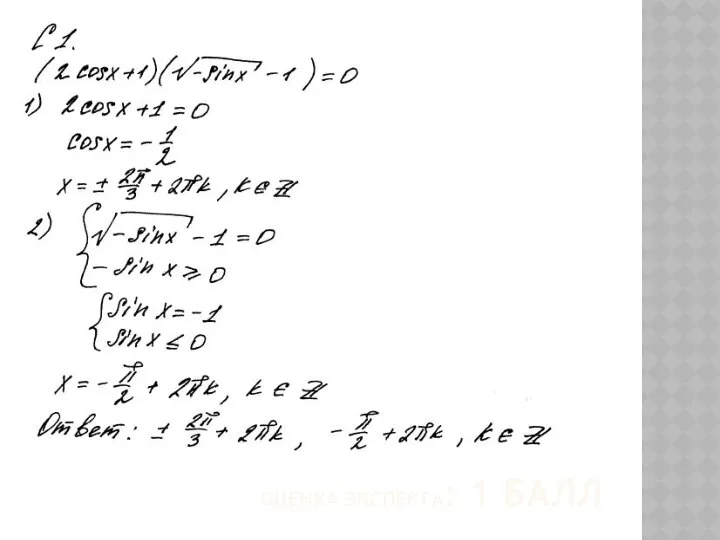 С 1.
(2cosx+1)(√-sinx - 1) = 0
1) 2cosx+1=0
cosx = - 1/2
x = ± 2π/3 + 2πk, k ∈ Z
2) { √-sinx - 1 = 0
- sin x ≥ 0
{ sin x = -1
sin x ≤ 0
x = - π/2 + 2πk, k ∈ Z
Ответ: ± 2π/3 + 2πk, - π/2 + 2πk, k ∈ Z
ОЦЕНКА ЭКСПЕРТА: 1 БАЛЛ